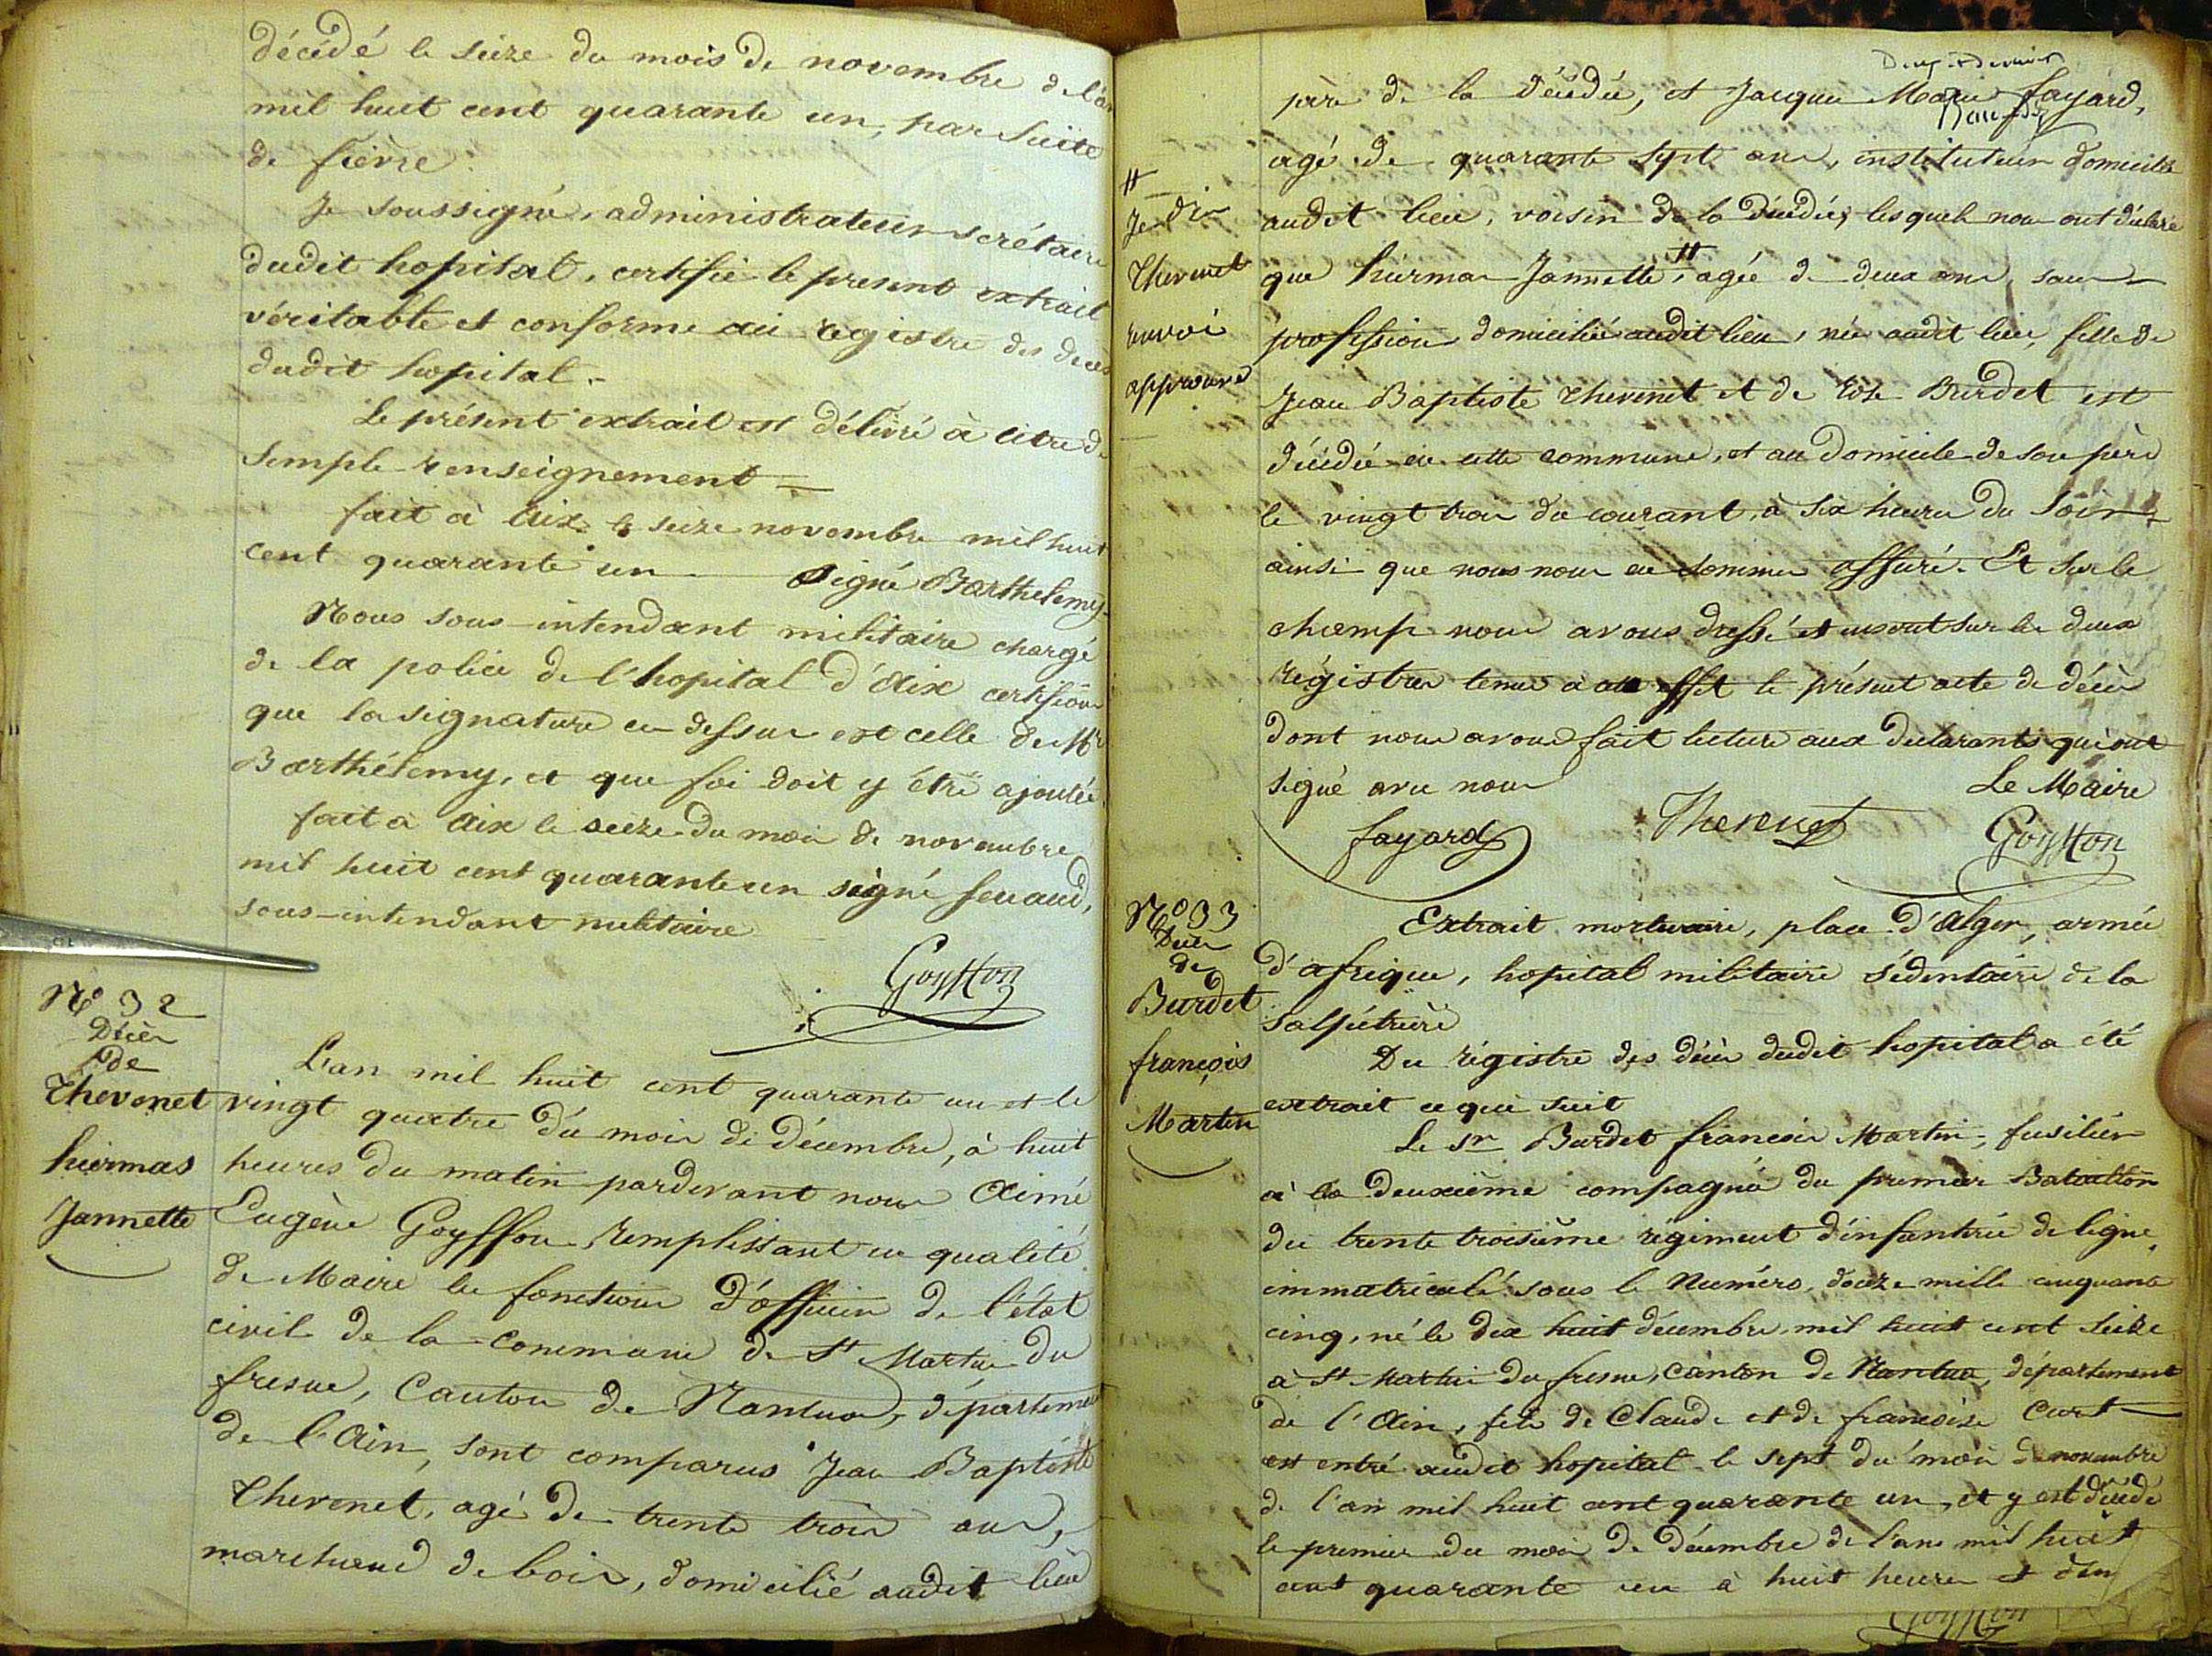 décédé le seize du mois de novembre de l'an
mil huit cent quarante un, par suite
de fièvre.
Je soussigné, administrateur secrétaire
dudit hopital, certifie le present extrait
véritable et conforme au registre des decès
dudit hopital.
Le présent extrait est délivré à titre de
simple renseignement
fait à Aix le seize novembre mil huit
cent quarante un signé Barthelemy
Nous sous-intendant militaire chargé
de la police de l'hopital d'Aix certifions
que la signature ci-dessus est celle de Mr
Barthélemy, et que foi doit y être ajoutée.
fait à Aix le seize du mois de novembre
mil huit cent quarante un signé
sous-intendant militaire
Goyffon
No 32
Décès
de
Thevenet
hiermas
Jannette
L'an mil huit cent quarante un et le
vingt quatre du mois de décembre, à huit
heures du matin pardevant nous Aimé
Eugène Goyffon, remplissant en qualité
de Maire les fonctions d'officier de l'état
civil de la commune de St Martin du
fresne, Canton de Nantua, département
de l'Ain, sont comparus Jean Baptiste
Thevenet, agé de trente trois ans,
marchand de bois, domicilié audit lieu
père de la décédée, et Jacques Marie fayard,
agé de quarante sept ans, instituteur domicilié
audit lieu, voisin de la décédée, lesquels nous ont déclaré
que hiermas Jannette, # agée de deux ans, sans
profession domiciliée audit lieu, née audit lieu, fille de
Jean Baptiste Thevenet et de Rose Burdet est
décédée en cette commune, et au domicile de son père
le vingt trois du courant, à six heures du soir,
ainsi que nous nous en sommes assuré. Et sur le
champ nous avons dressé et inscrit sur les deux
régistres tenus à cet effet le présent acte de décès
dont nous avons fait lecture aux déclarants qui ont
signé avec nous
Le Maire
fayard Thevenet Goyffon
#
Je dis
Thevenet
renvoi
approuvé
No 33
Décès
de
Burdet
françois
Martin
Extrait mortuaire, place d'Alger, armée
d'afrique, hopital militaire sédentaire de la
salpétrière
Du régistre des décès dudit hopital a été
extrait ce qui suit
Le Sr Burdet francois Martin, fusilier
à la deuxième compagnie du premier Bataillon
du trente troisième régiment d'infantrie de ligne,
immatriculé sous le Numéro, douze mille cinquante
cinq, né le dix huit décembre mil huit cent seize
à St Martin du fresne, canton de Nantua, département
de l'Ain, fils de Claude et de francoise Curt
est entré audit hopital le sept du mois de novembre
de l'an mil huit cent quarante un, et y est décédé
le premier du mois de décembre de l'an mil huit
cent quarante un à huit heures et
Goyffon